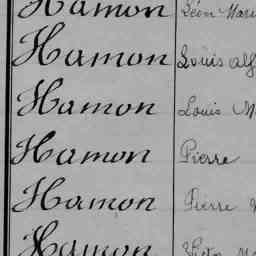 Hamon Léon Mari
Hamon Louis Alf
Hamon Louis M
Hamon Pierre
Hamon Pierre
Hamon